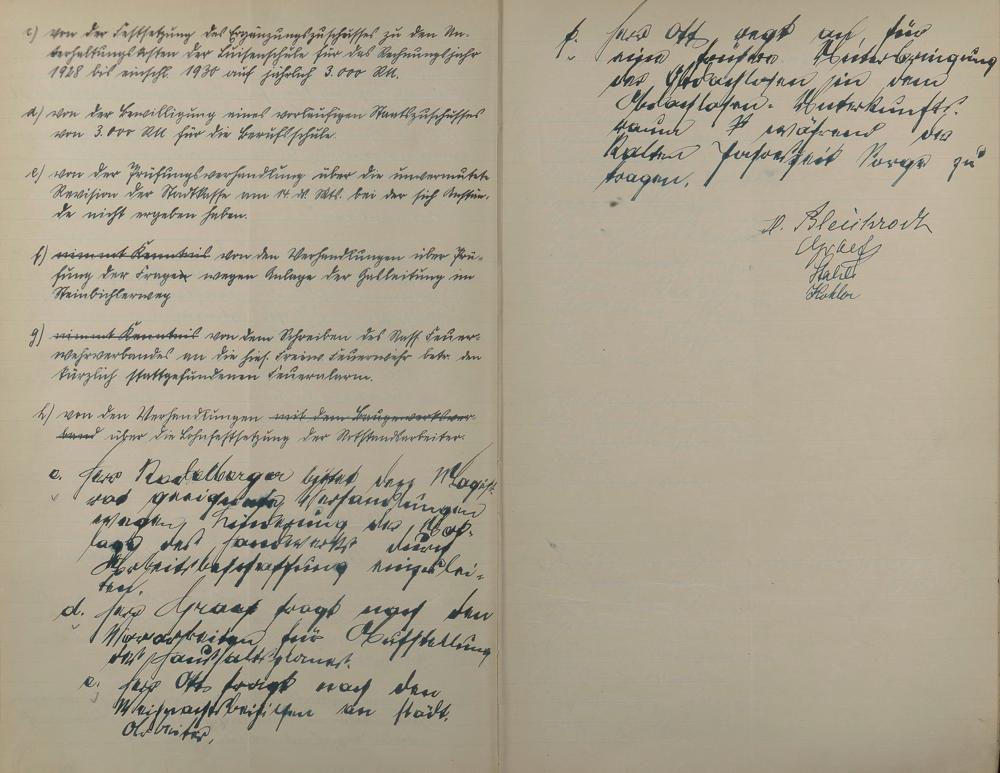 c) von der Festsetzung des Ergänzungszuschusses zu den Un-
terhaltungskosten der Luisenschule für das Rechnungsjahr
1928 bis einschl. 1930 auf jährlich 3.000 RM.
d) von der Bewilligung eines vorläufigen Staatszuschusses
von 3.000 RM für die Berufsschule.
e) von der Prüfungsverhandlung über die unvermutete
Revision der Stadtkasse am d. Mts. bei der sich Anstän-
de nicht ergeben haben.
f) nimmt Kenntnis von den Verhandlungen über Prü-
fung der Fragen wegen Anlage der Gasleitung im
Steinbichlerweg
g) nimmt Kenntnis von dem Schreiben des Nass. Feuer-
wehrverbandes an die hies. Freiw. Feuerwehr betr. den
kürzlich stattgefundenen Feueralarm.
h) von den Verhandlungen mit dem Baugewerksver-
band über die Lohnfestsetzung der Notstandsarbeiter.
c. Herr bittet den Magist-
rat geeignete Verhandlungen
wegen Linderung der Not-
lage des Handwerks durch
Arbeitsbeschaffung einzulei-
ten.
d. Herr Graef fragt nach den
Vorarbeiten für Aufstellung
des Haushaltsplanes.
e. Herr Ott fragt nach den
Weihnachtsbeihilfen an städt.
Arbeiter.
f. Herr Ott regt an, für
eine Unterbringung
der Obdachlosen in dem
Obdachlosen-Unterkunfts-
raum während der
kalten Jahreszeit Sorge zu
tragen.
Bleichrodt
Graef
Kohler